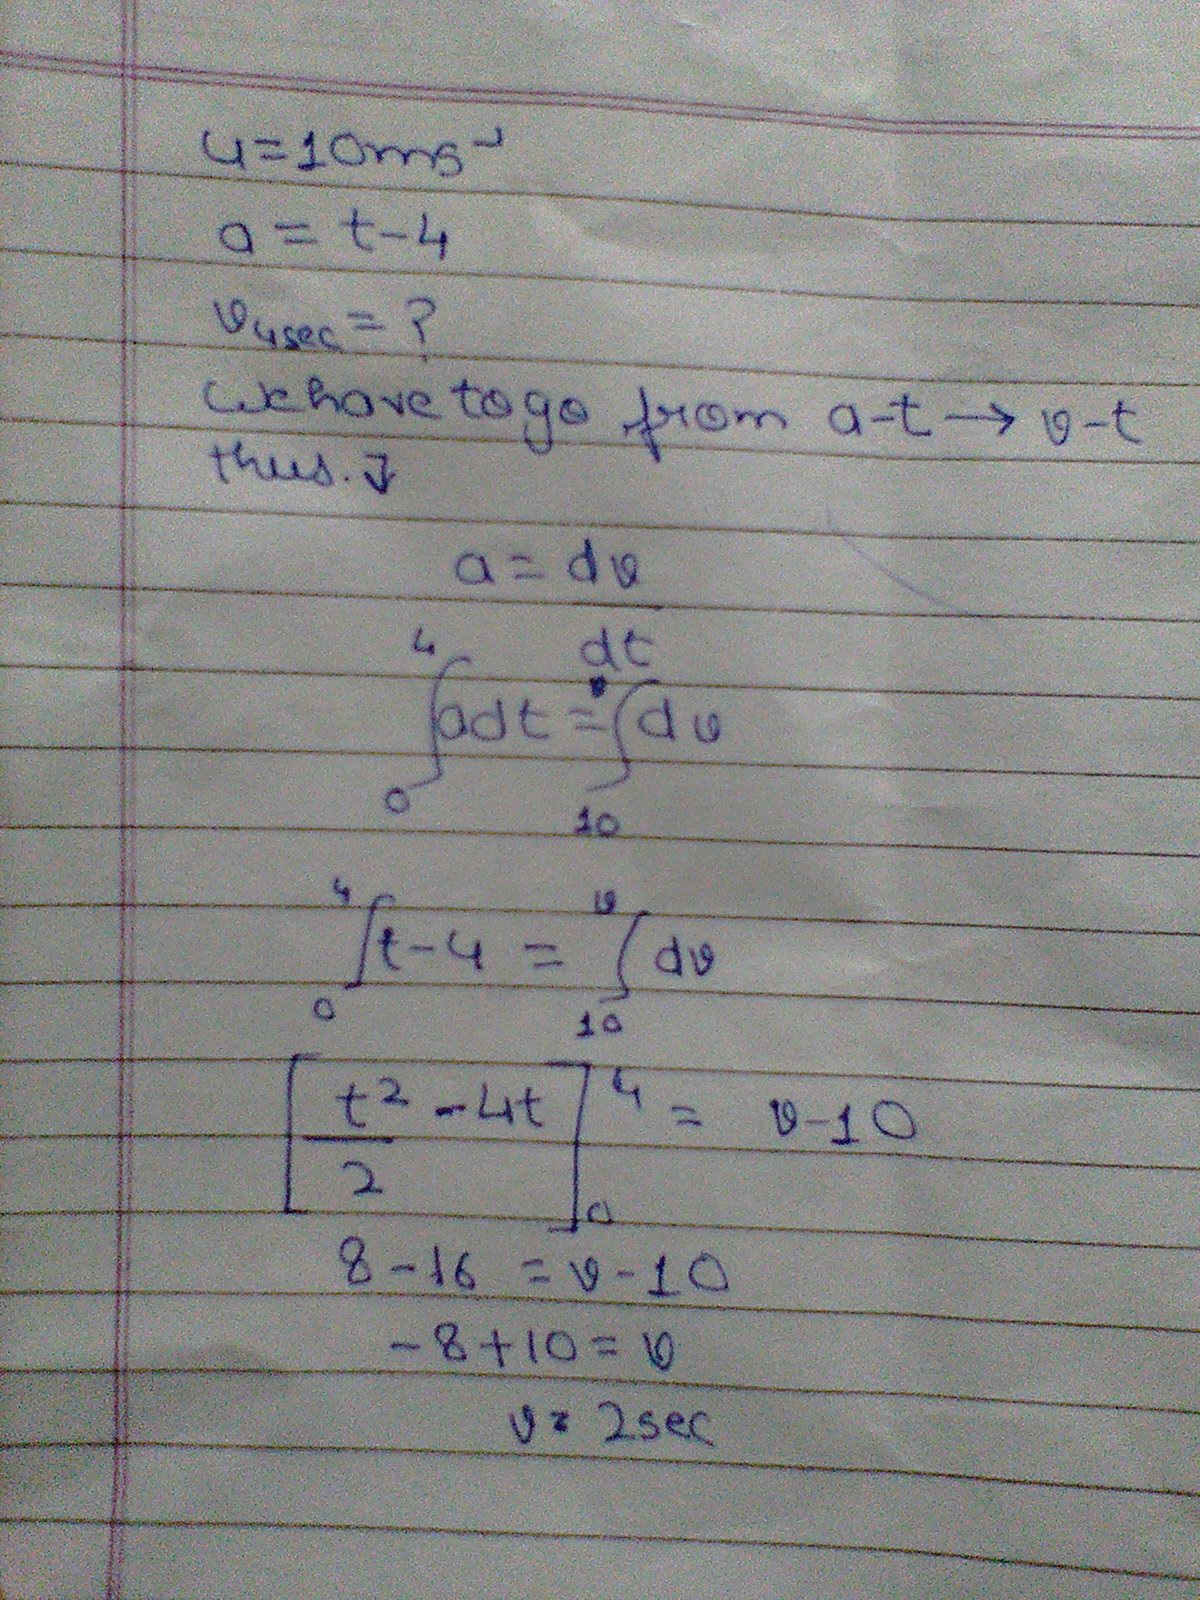 u=10ms⁻¹
a = t-4
v4sec = ?
We have to go from a-t → v-t
thus. ↓
a = dv
dt
4 v
∫adt = ∫dv
0 10
4 v
∫t-4 = ∫dv
0 10
[t² -4t]⁴ = v-10
2 0
8-16 = v-10
-8+10 = v
v = 2sec